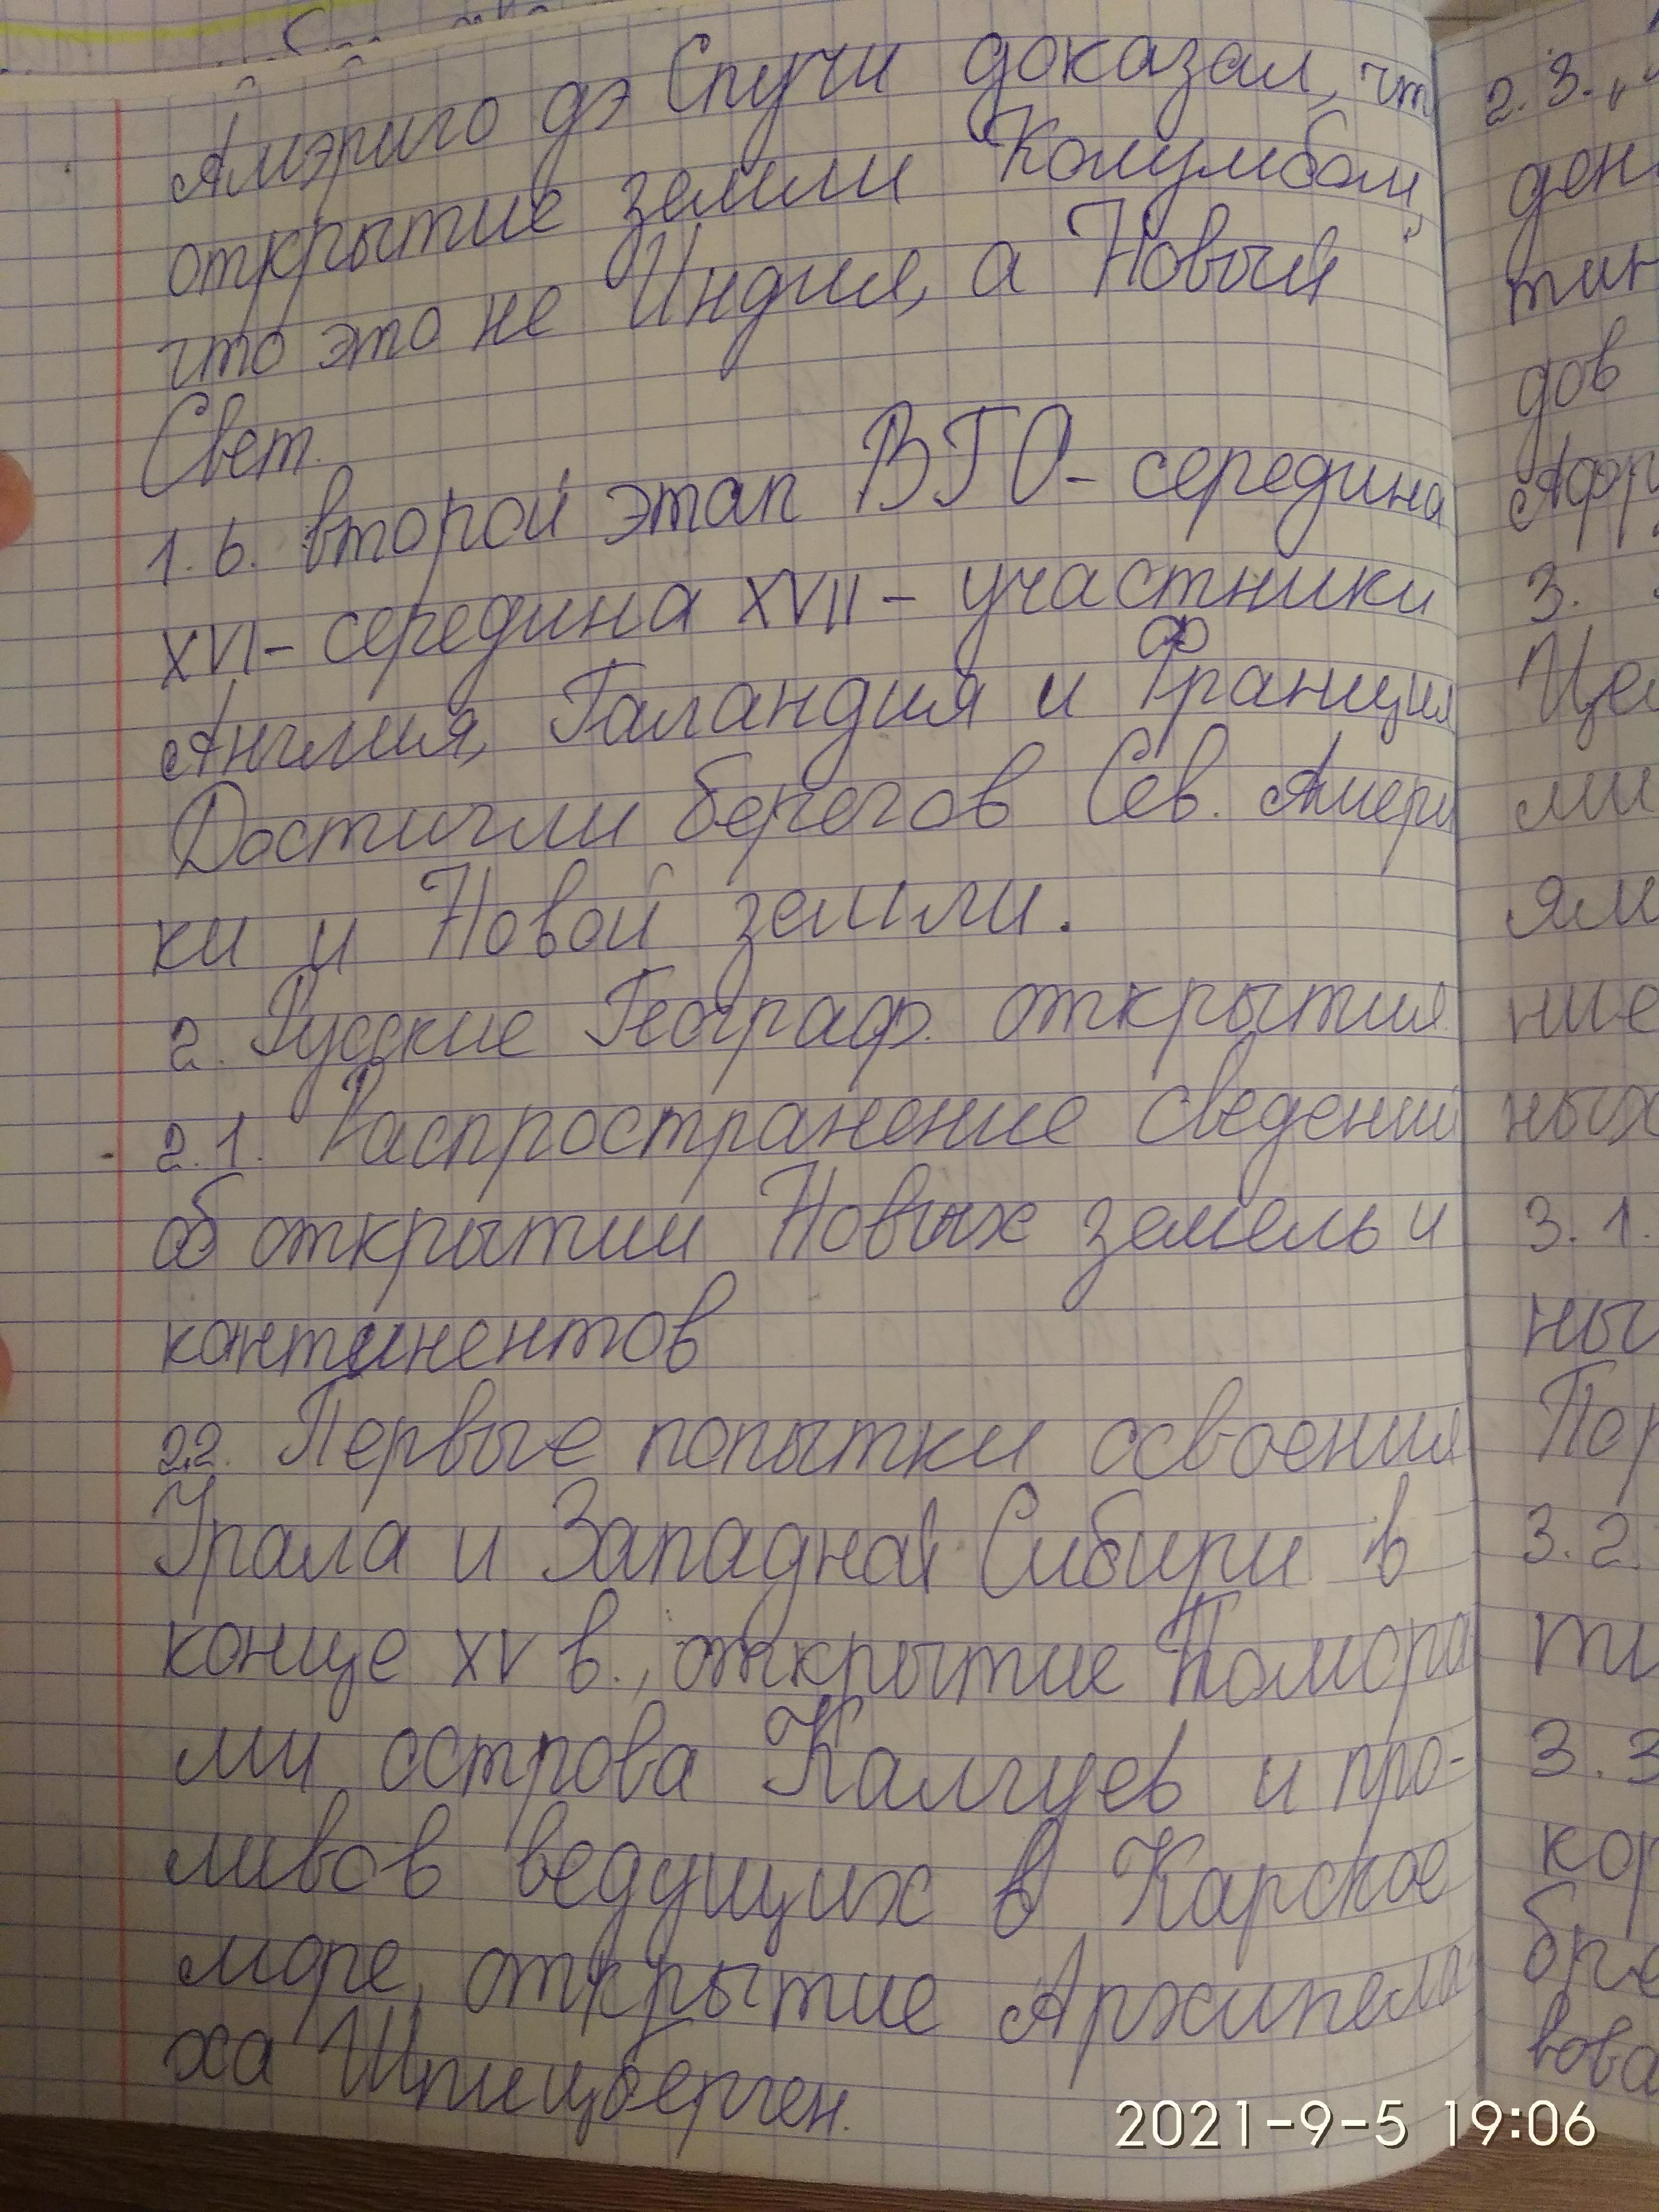 Амэриго дэ Спучи доказал, чт
открытие земли Колумбом,
что это не Индия, а Новый
Свет.
1.6. второй этап ВГО - середина
XVI - середина XVII - участники
Англия, Галандия и Франция
Достигли берегов Сев. Амери
ки и Новой земли.
2. Русские Географ. открытия
2.1. Распространение сведений
об открытии Новых земель и
кантинентов
2.2. Первые попытки освоения
Урала и Западной Сибири в
конце XV в., открытие Помора
ми острова Калгуев и про-
ливов ведущих в Карское
море, открытие Архипела
ха Шпицберген.
2.3. „
ден
тин
дов
Афр
3.
Цел
ми
ям
ние
ных
3.1.
ны
Пор
3.2.
ти
3.3
кор
бре
вова
2021-9-5 19:06